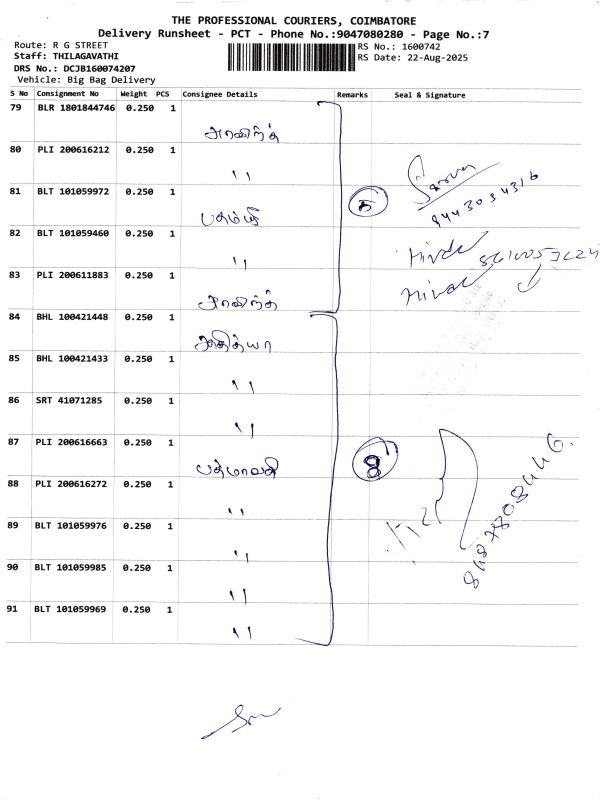 THE PROFESSIONAL COURIERS, COIMBATORE
Delivery Runsheet - PCT - Phone No.:9047080280 - Page No.:7
Route: R G STREET
Staff: THILAGAVATHI
DRS No.: DCJB160074207
Vehicle: Big Bag Delivery
RS No.: 1600742
RS Date: 22-Aug-2025
S No Consignment No Weight PCS Consignee Details Remarks Seal & Signature
79 BLR 1801844746 0.250 1
அரவிந்த்
80 PLI 200616212 0.250 1
"
81 BLT 101059972 0.250 1
5
82 BLT 101059460 0.250 1
"
83 PLI 200611883 0.250 1
அரவிந்த்
84 BHL 100421448 0.250 1
ஆதித்யா
85 BHL 100421433 0.250 1
"
86 SRT 41071285 0.250 1
"
87 PLI 200616663 0.250 1
பத்மாவதி
8
88 PLI 200616272 0.250 1
"
89 BLT 101059976 0.250 1
"
90 BLT 101059985 0.250 1
"
91 BLT 101059969 0.250 1
"